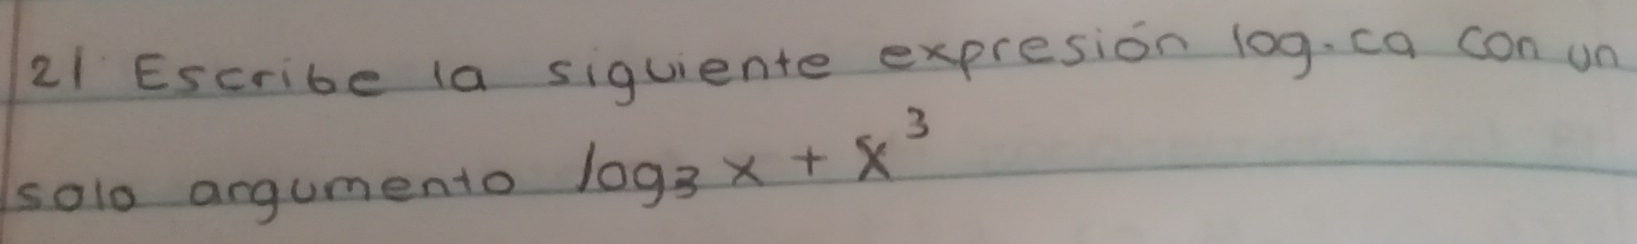 21 Escribe la siguiente expresión log.ca con un
solo argumento log₃ x + x³